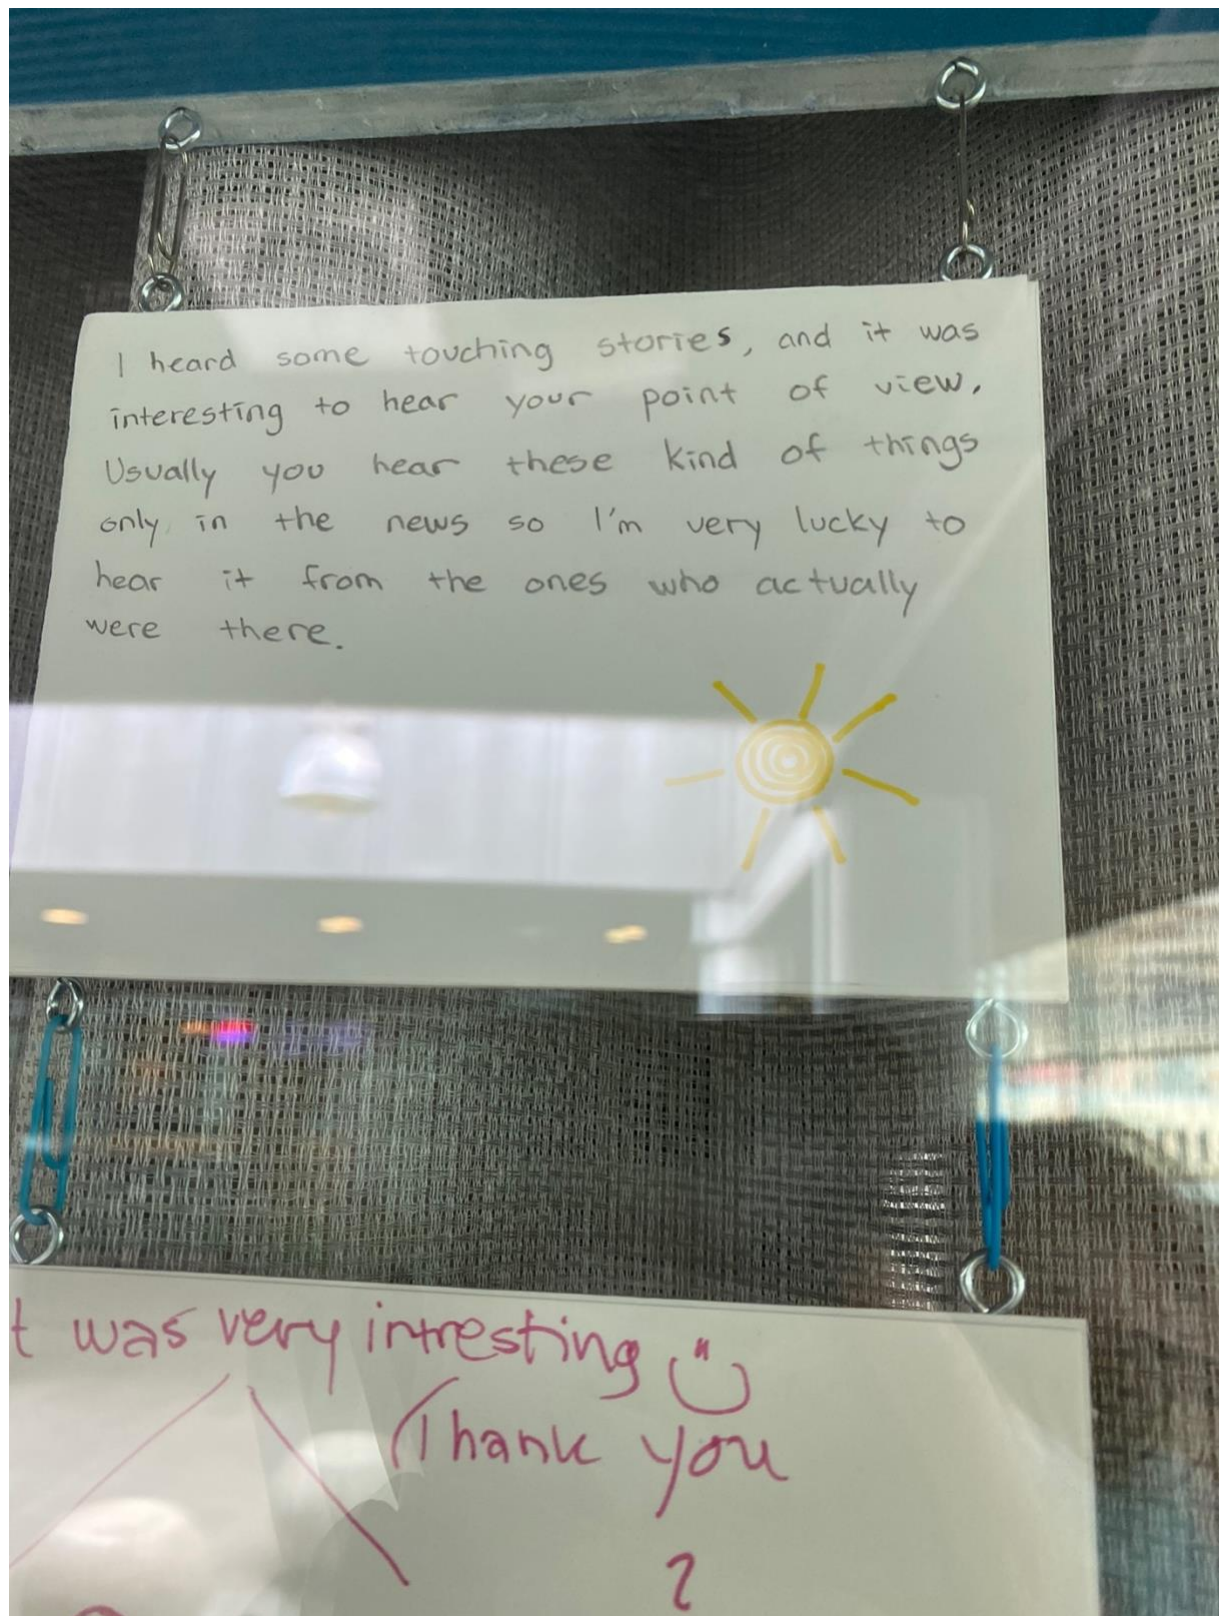 I heard some touching stories, and it was
interesting to hear your point of view.
Usually you hear these kind of things
only in the news so I'm very lucky to
hear it from the ones who actually
were there.
t was very intresting
Thank you